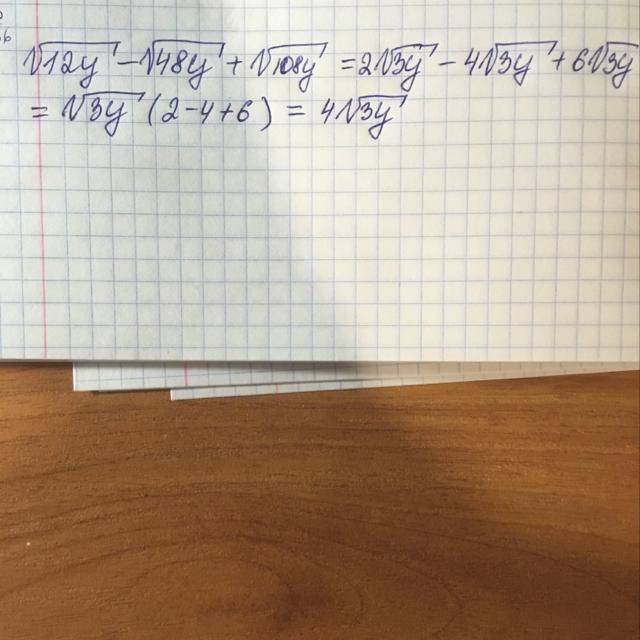 √12y − √48y + √108y = 2√3y − 4√3y + 6√3y
= √3y (2−4+6) = 4√3y